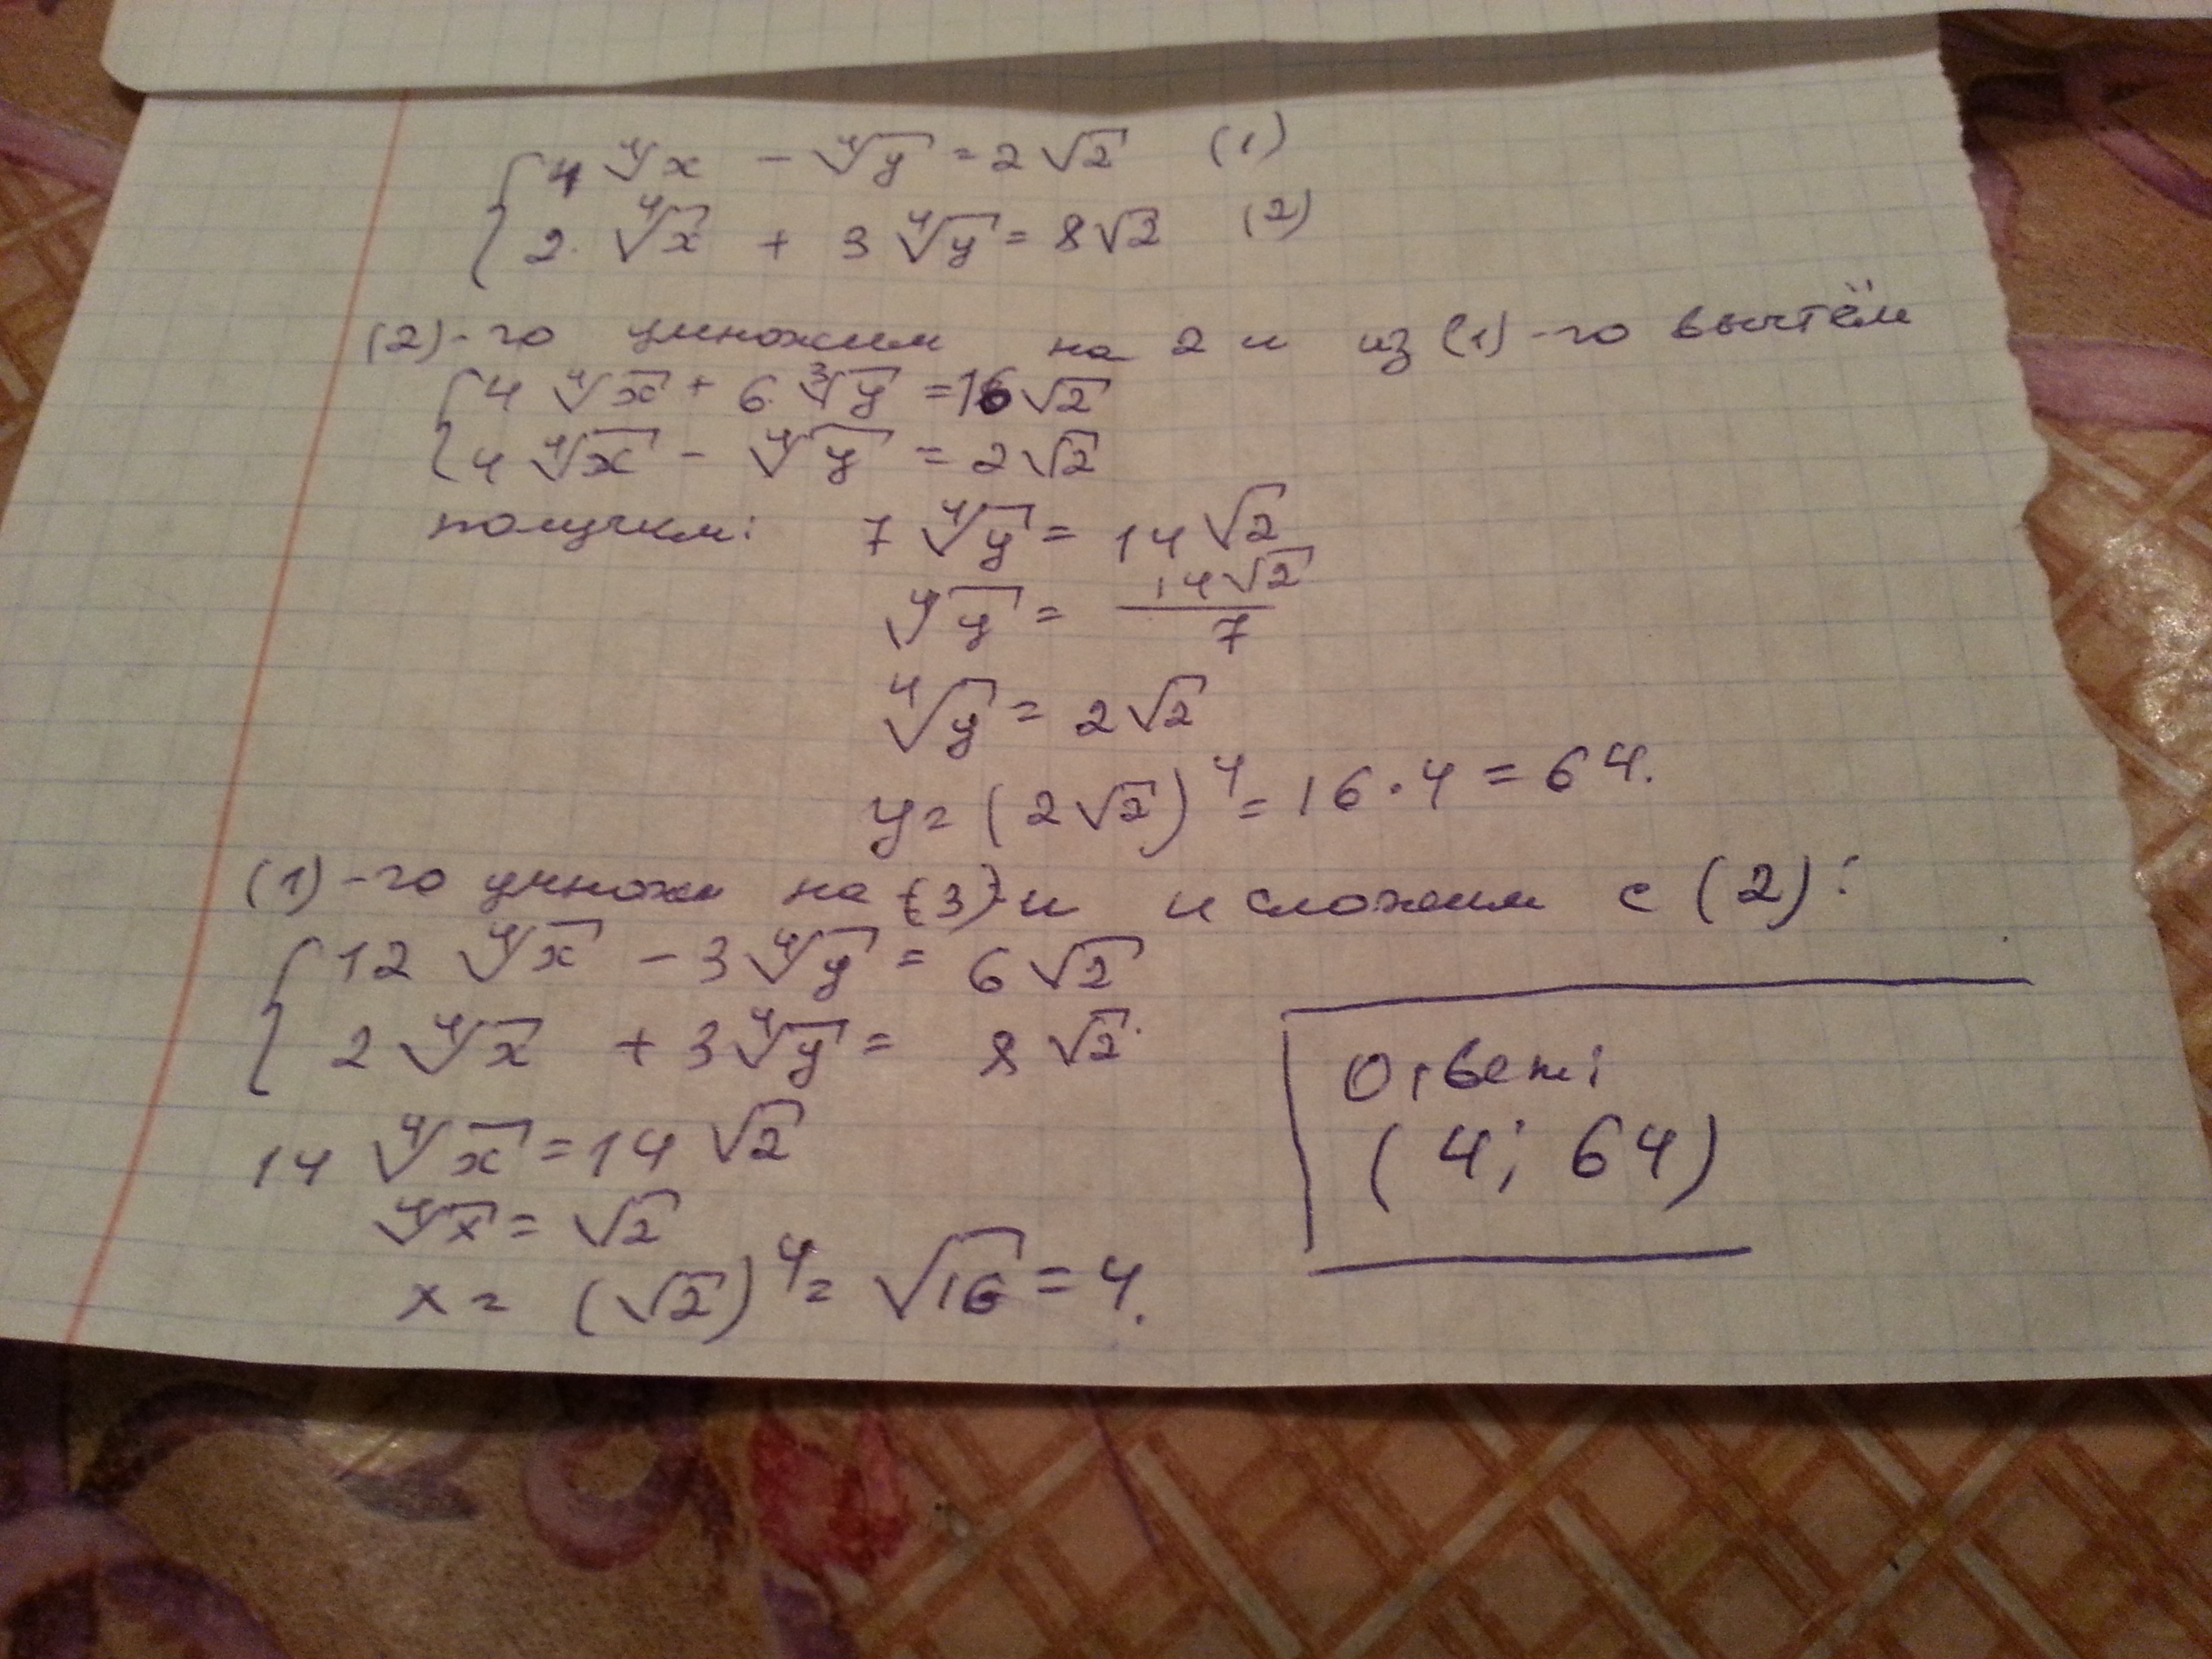 4 ∜x - ∜y = 2√2 (1)
2· ∜x + 3 ∜y = 8√2 (2)
(2)-го умножим на 2 и из (1)-го вычтём
4 ∜x + 6·∛y = 16√2
4 ∜x - ∜y = 2√2
получим: 7 ∜y = 14√2
∜y = 14√2 / 7
∜y = 2√2
y = (2√2)⁴ = 16·4 = 64.
(1)-го умножи на (3)-и и сложим с (2):
12 ∜x - 3∜y = 6√2
2 ∜x + 3∜y = 8√2
14 ∜x = 14√2
∜x = √2
x = (√2)⁴ = √16 = 4.
Ответ:
(4; 64)